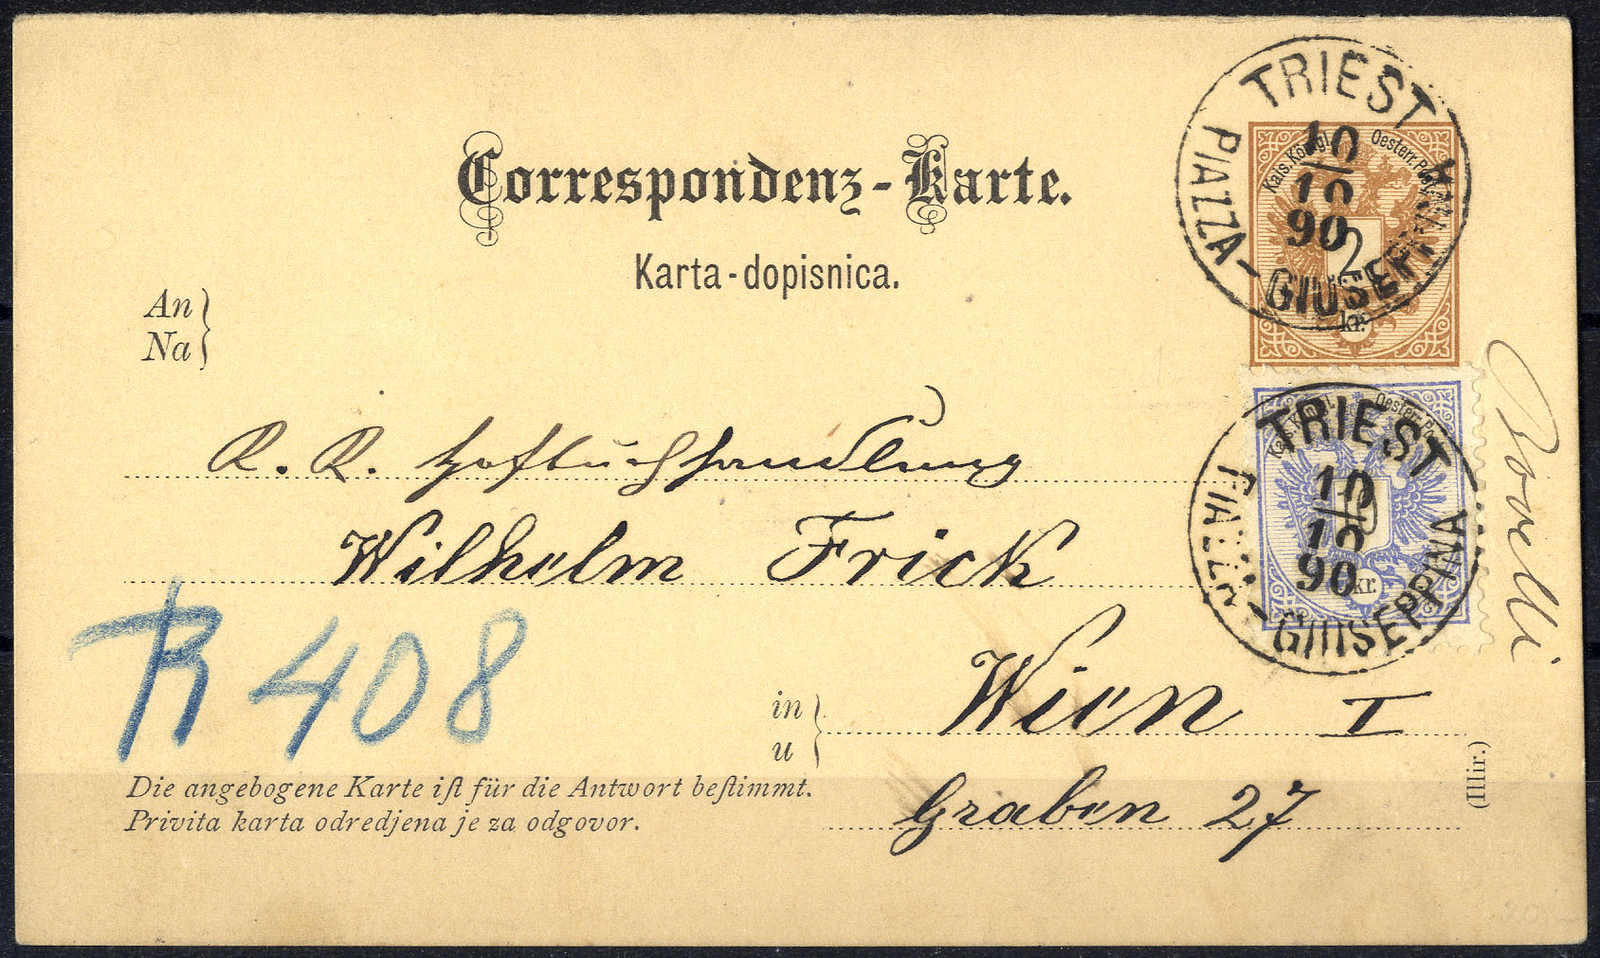 TRIEST
PIAZZA - GIUSEPPINA
10
10
90
Kais. Königl. Oesterr. Post
2
kr.
Correspondenz-Karte.
Karta-dopisnica.
An
Na
K. K. Hofbuchhandlung
Wilhelm Frick
TRIEST
PIAZZA - GIUSEPPINA
10
10
90
Kais. Königl. Oesterr. Post
kr.
R 408
in
u
Wien I
Graben 27
Die angebogene Karte iſt für die Antwort beſtimmt.
Privita karta odredjena je za odgovor.
(Illir.)